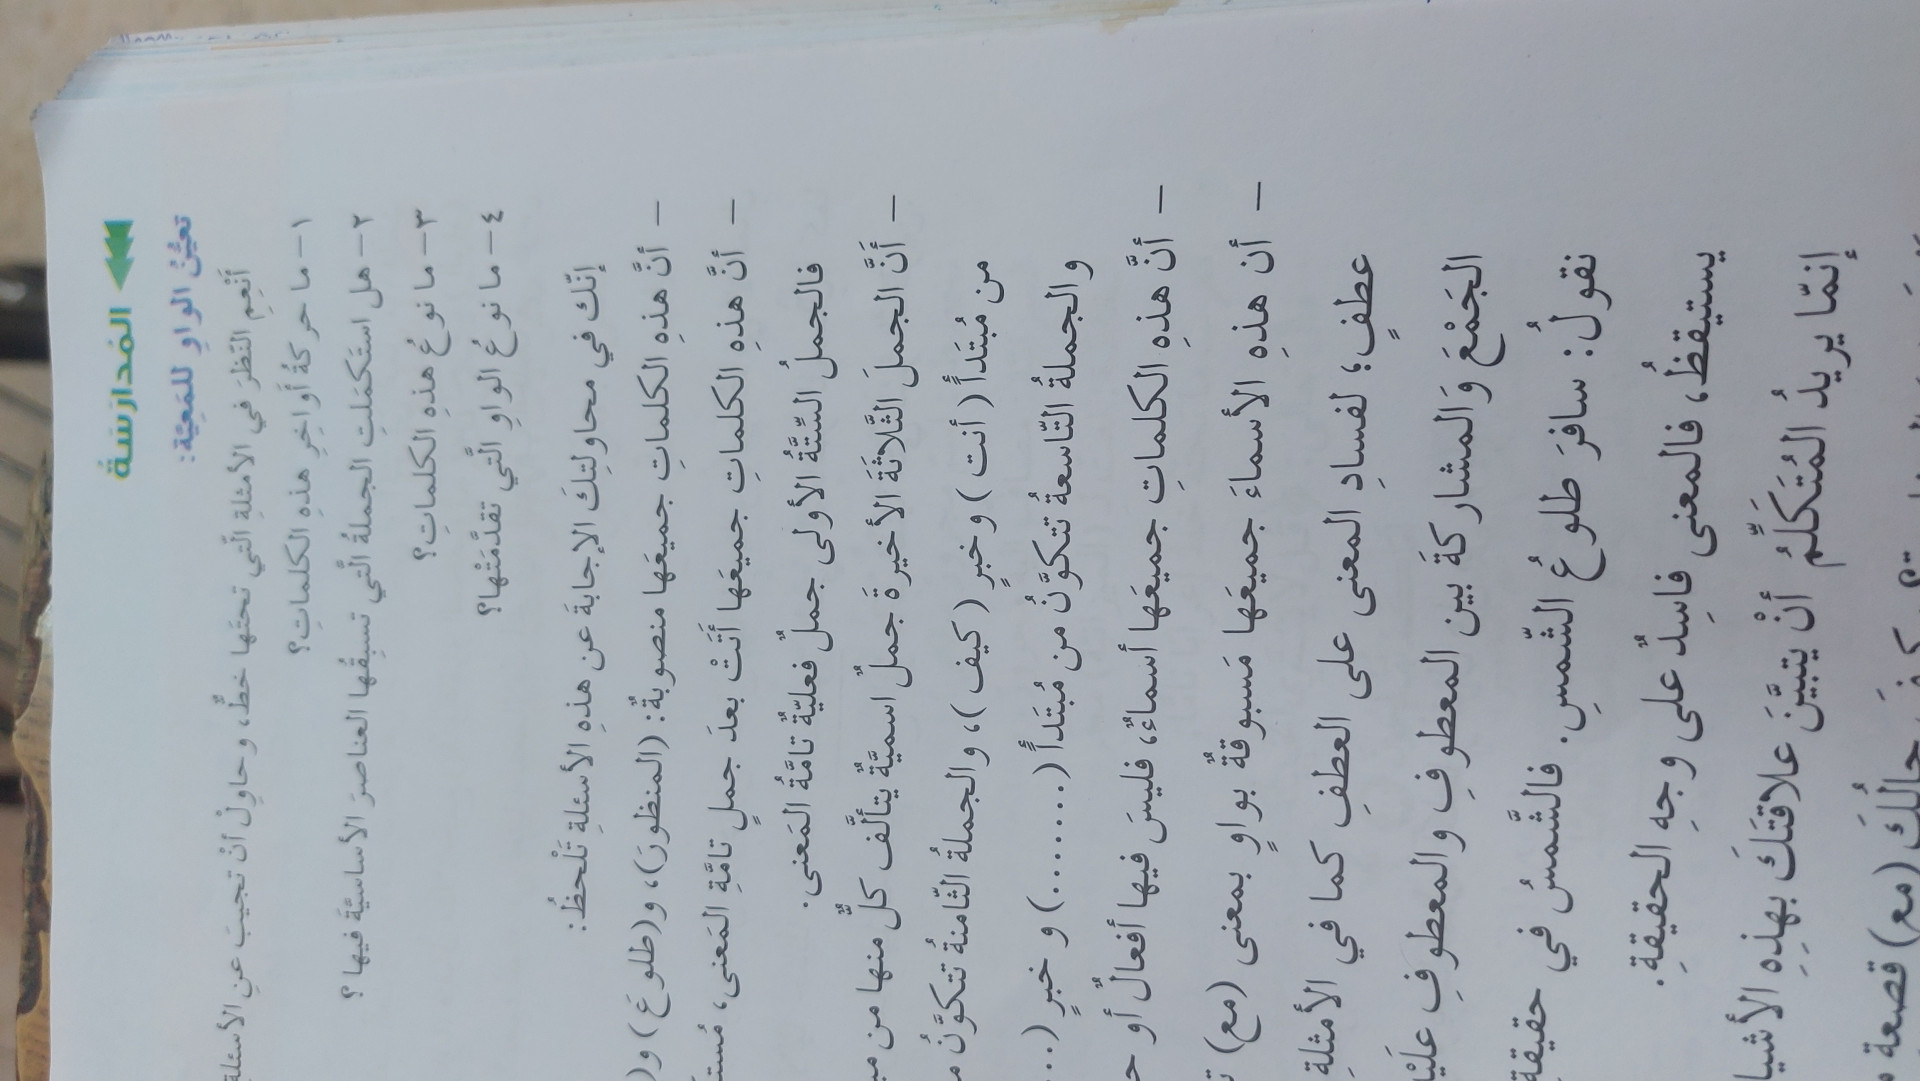 المُدارَسَةُ
تعيُّنُ الواوِ للمَعِيَّة:
أَنْعِمِ النَّظَرَ في الأمثلةِ الَّتي تحتَها خطٌّ، وحاوِلْ أنْ تجيبَ عنِ الأسئلةِ
١- ما حركةُ أواخِرِ هذهِ الكلماتِ؟
٢- هل استَكمَلتِ الجملةُ الَّتي تسبِقُها العناصرَ الأساسيَّةَ فيها؟
٣- ما نوعُ هذهِ الكلماتِ؟
٤- ما نوعُ الواوِ الَّتي تقدَّمَتْها؟
إنّك في محاولتِكَ الإجابةَ عن هذهِ الأسئلةِ تَلْحظُ:
– أنَّ هذهِ الكلماتِ جميعَها منصوبةٌ: (المنظورَ)، و(طلوعَ) و(
– أنَّ هذهِ الكلماتِ جميعَها أتَتْ بعدَ جملٍ تامَّةِ المَعنى،
فالجملُ السِّتَّةُ الأولى جملٌ فعليّةٌ تامَّةُ المَعنى.
– أَنَّ الجملَ الثَّلاثَةَ الأخيرةَ جملٌ اسميَّةٌ يتألَّف كلٌّ منها من
من مُبتَدَأً (أنت) وخبرٍ (كيف)، والجملةُ الثّامنةُ تتكوَّنُ
والجملةُ التّاسعةُ تتكوَّنُ من مُبتَدَأً (........) و خبرٍ (...
– أنَّ هذهِ الكلماتِ جميعَها أسماءٌ، فليسَ فيها أفعالٌ أو
– أن هذِهِ الأسماءَ جميعَها مَسبوقةٌ بواوٍ بمعنى (مع)
عطفٍ؛ لفسادِ المعنى على العطفِ كما في الأمثلةِ
الجَمْعَ وَالمشاركةَ بين المعطوفِ والمعطوفِ عليْ
نقولُ: سافرَ طلوعُ الشّمسِ. فالشَّمسُ في حقيقةِ
يستيقظُ، فالمعنى فاسِدٌ على وجهِ الحقيقةِ.
إنمّا يريدُ المُتَكلِّمُ أنْ يتبيَّنَ علاقتَكَ بهذِهِ الأشيا
حالُكَ (مع) قصعة